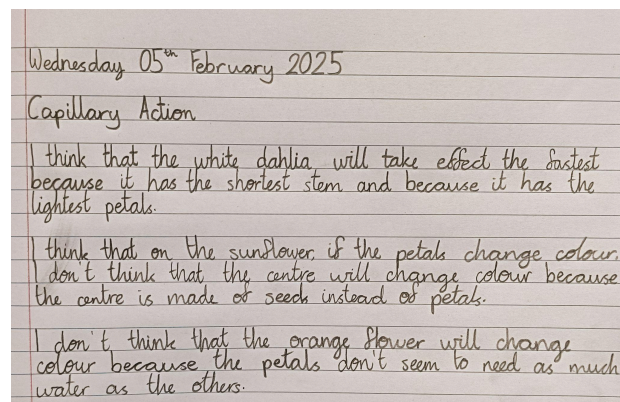 Wednesday 05th February 2025
Capillary Action
I think that the white dahlia will take effect the fastest
because it has the shortest stem and because it has the
lightest petals.
I think that on the sunflower, if the petals change colour,
I don't think that the centre will change colour because
the centre is made of seeds instead of petals.
I don't think that the orange flower will change
colour because the petals don't seem to need as much
water as the others.